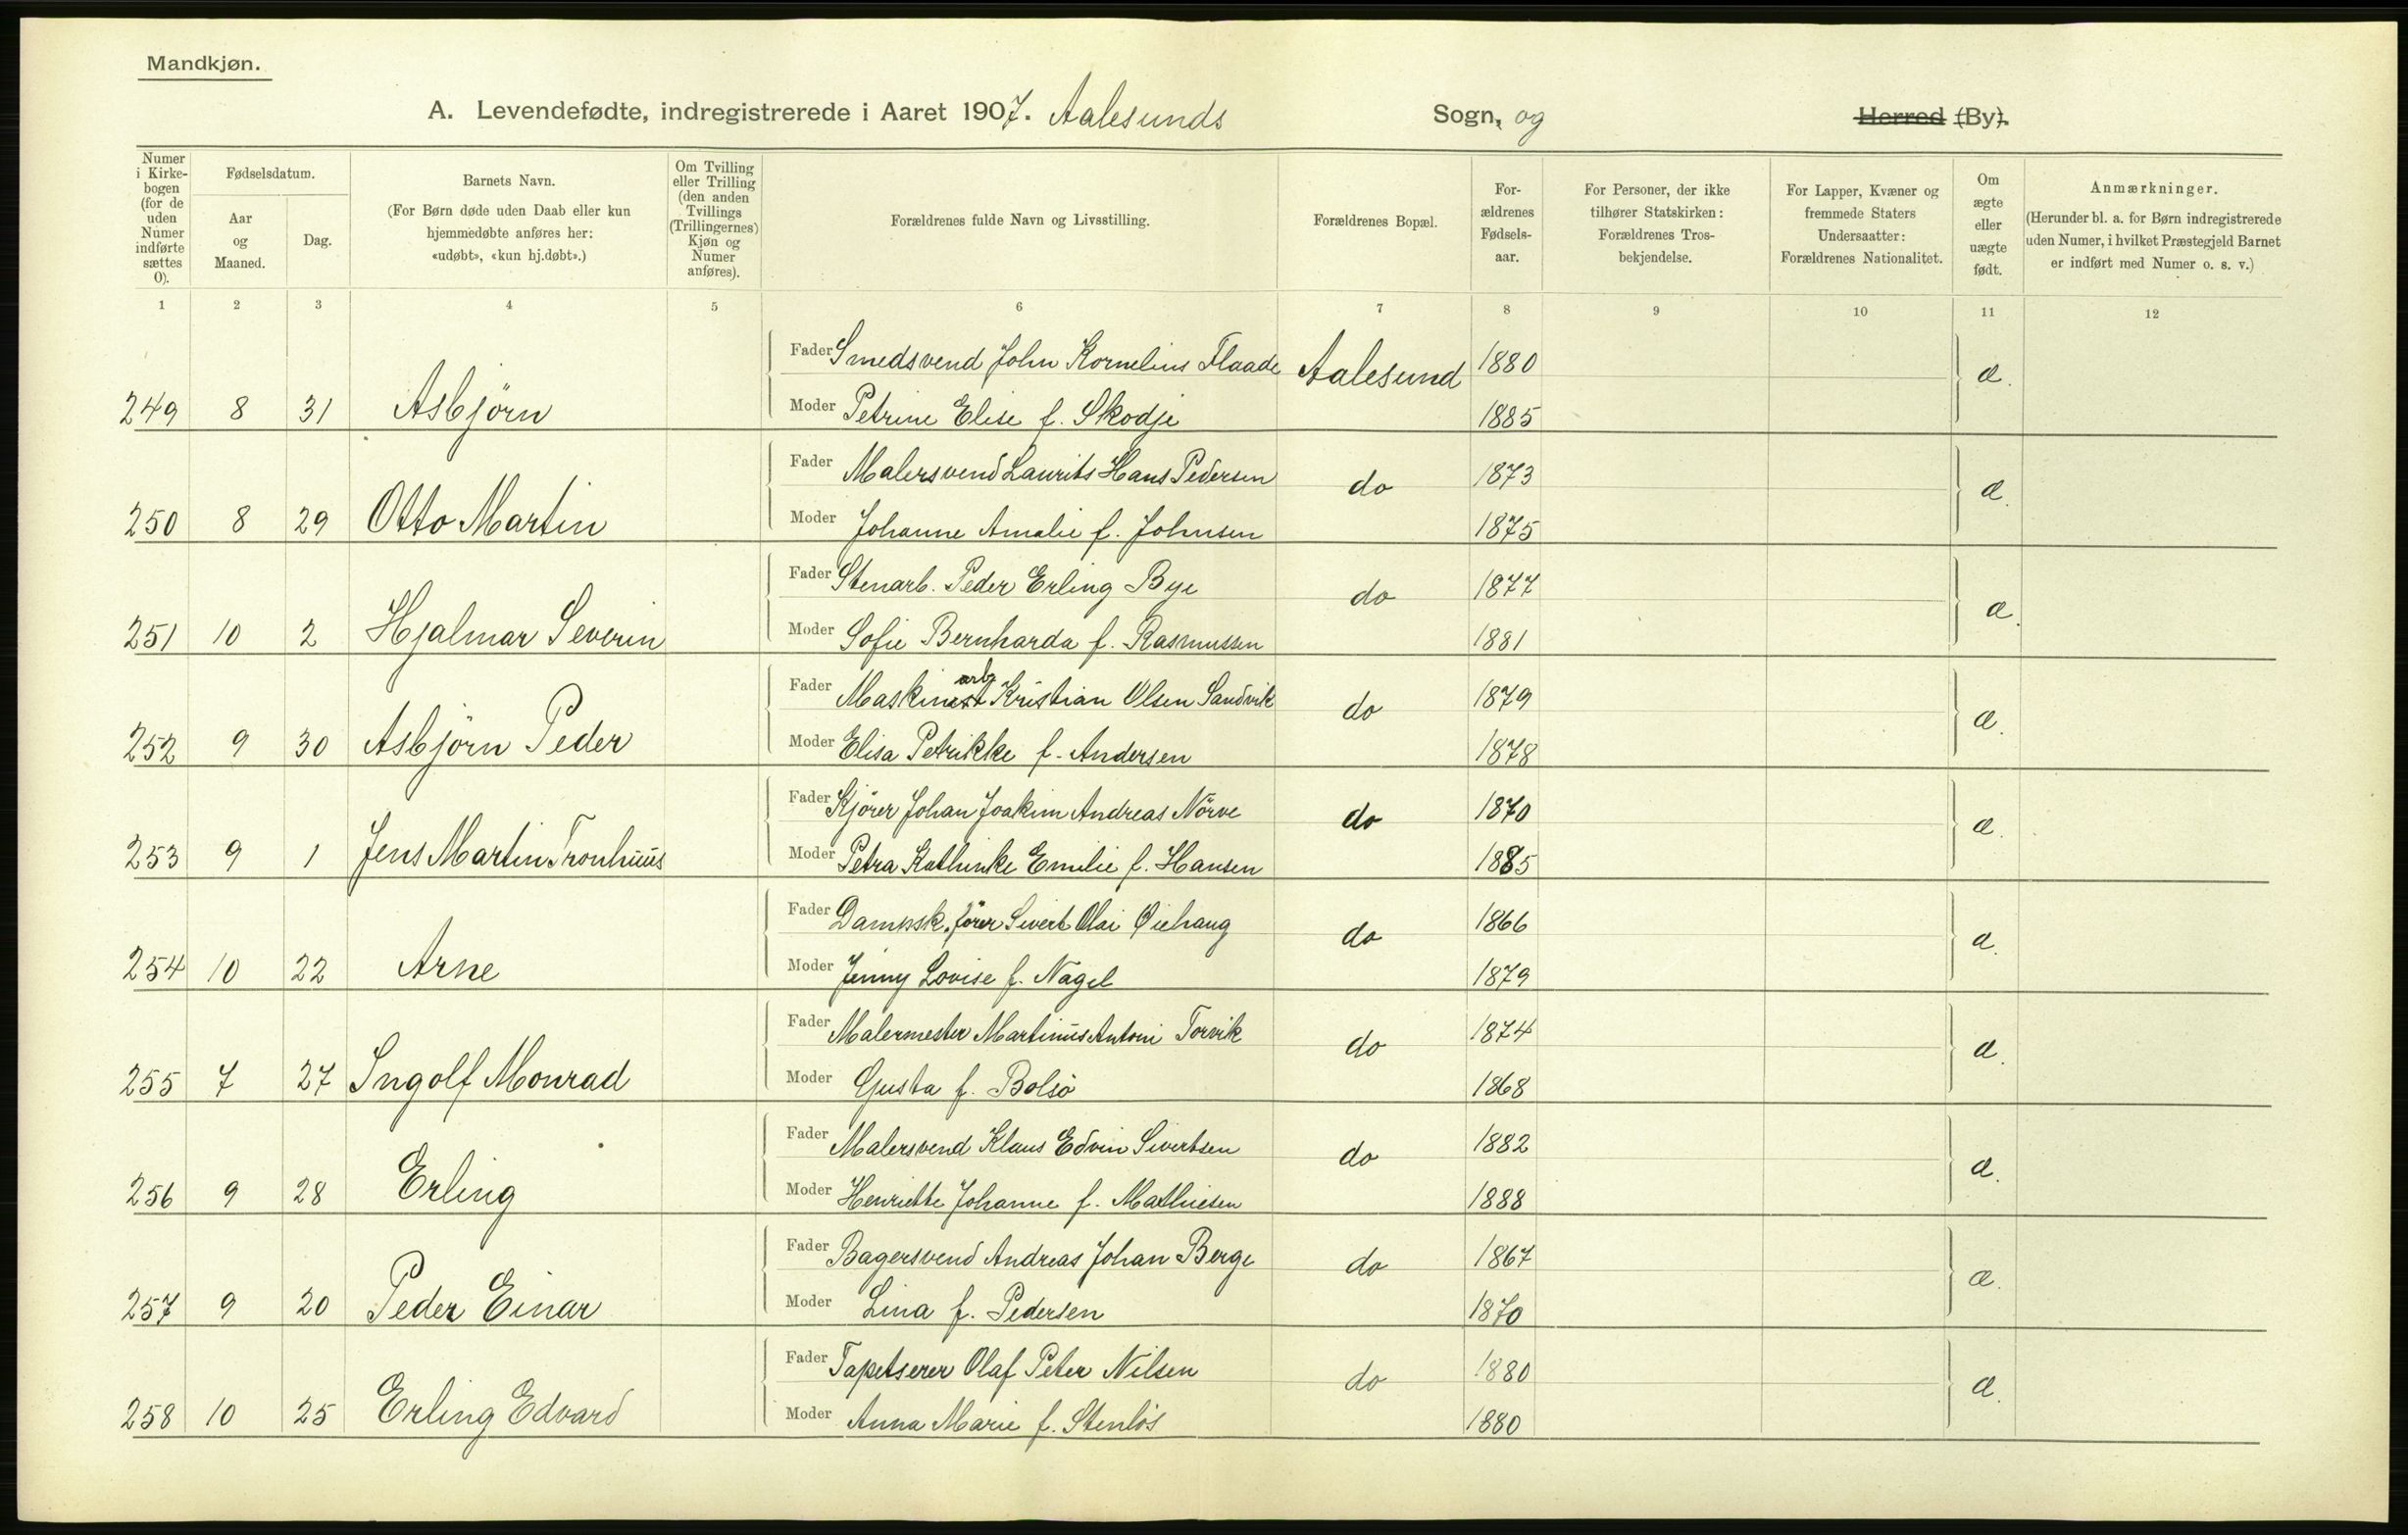 Mandkjøn.
A. Levendefødte, indregistrerede i Aaret 1907. Aalesunds Sogn, og Herred (By).
Numer i Kirkebogen (for de uden Numer indførte sættes 0).
Fødselsdatum.
Aar og Maaned.
Dag.
Barnets Navn.
(For Børn døde uden Daab eller kun hjemmedøbte anføres her: «udøbt», «kun hj.døbt».)
Om Tvilling eller Trilling (den anden Tvillings (Trillingernes) Kjøn og Numer anføres).
Forældrenes fulde Navn og Livsstilling.
Forældrenes Bopæl.
Forældrenes Fødselsaar.
For Personer, der ikke tilhører Statskirken: Forældrenes Trosbekjendelse.
For Lapper, Kvæner og fremmede Staters Undersaatter: Forældrenes Nationalitet.
Om ægte eller uægte født.
Anmærkninger.
(Herunder bl. a. for Børn indregistrerede uden Numer, i hvilket Præstegjeld Barnet er indført med Numer o. s. v.)
1 2 3 4 5 6 7 8 9 10 11 12
Fader Smedsvend John Kornelius Flaade Aalesund 1880 æ.
249 8 31 Asbjörn Moder Petrine Elise f. Skodje 1885
Fader Malersvend Laurits Hans Pedersen do 1873 æ.
250 8 29 Otto Martin Moder Johanne Amalie f. Johnsen 1875
Fader Stenarb. Peder Erling Bye do 1877 æ.
251 10 2 Hjalmar Severin Moder Sofie Bernharda f. Rasmussen 1881
arb
Fader Maskinist Kristian Olsen Sandvik do 1879 æ.
252 9 30 Asbjörn Peder Moder Elisa Petrikke f. Andersen 1878
Fader Kjörer Johan Joakim Andreas Nörve do 1870 æ.
253 9 1 Jens Martin Tronhuus Moder Petra Kathinke Emilie f. Hansen 1885
Fader Dampsk.förer Sivert Olai Øiehaug do 1866 æ.
254 10 22 Arne Moder Jenny Lovise f. Nagel 1879
Fader Malermester Martinus Antoni Torvik do 1874 æ.
255 7 27 Ingolf Monrad Moder Gusta f. Bolsö 1868
Fader Malersvend Klaus Edvin Sivertsen do 1882 æ.
256 9 28 Erling Moder Henriette Johanne f. Mathiesen 1888
Fader Bagersvend Andreas Johan Berge do 1867 æ.
257 9 20 Peder Einar Moder Lina f. Pedersen 1870
Fader Tapetserer Olaf Peter Nilsen do 1880 æ.
258 10 25 Erling Edvard Moder Anna Marie f. Stenlös 1880